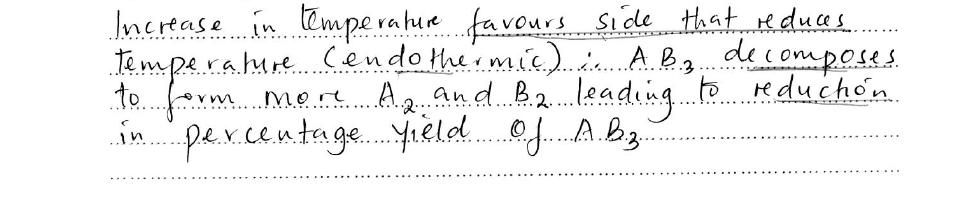 Increase in temperature favours side that reduces
temperature (endothermic) ∴ AB₃ decomposes
to form more A₂ and B₂ leading to reduction
in percentage yield of AB₃